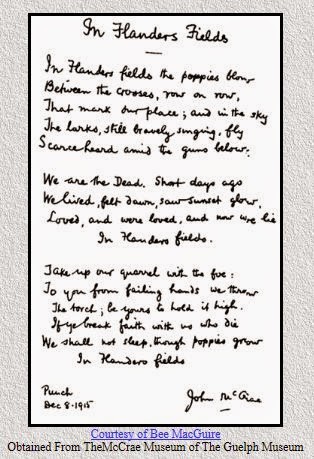 In Flanders Fields
In Flanders fields the poppies blow
Between the crosses, row on row,
That mark our place; and in the sky
The larks, still bravely singing, fly
Scarce heard amid the guns below.
We are the Dead. Short days ago
We lived, felt dawn, saw sunset glow,
Loved, and were loved, and now we lie
In Flanders fields.
Take up our quarrel with the foe:
To you from failing hands we throw
The torch; be yours to hold it high.
If ye break faith with us who die
We shall not sleep, though poppies grow
In Flanders fields
Punch
Dec 8·1915
John McCrae
Courtesy of Bee MacGuire
Obtained From TheMcCrae Museum of The Guelph Museum